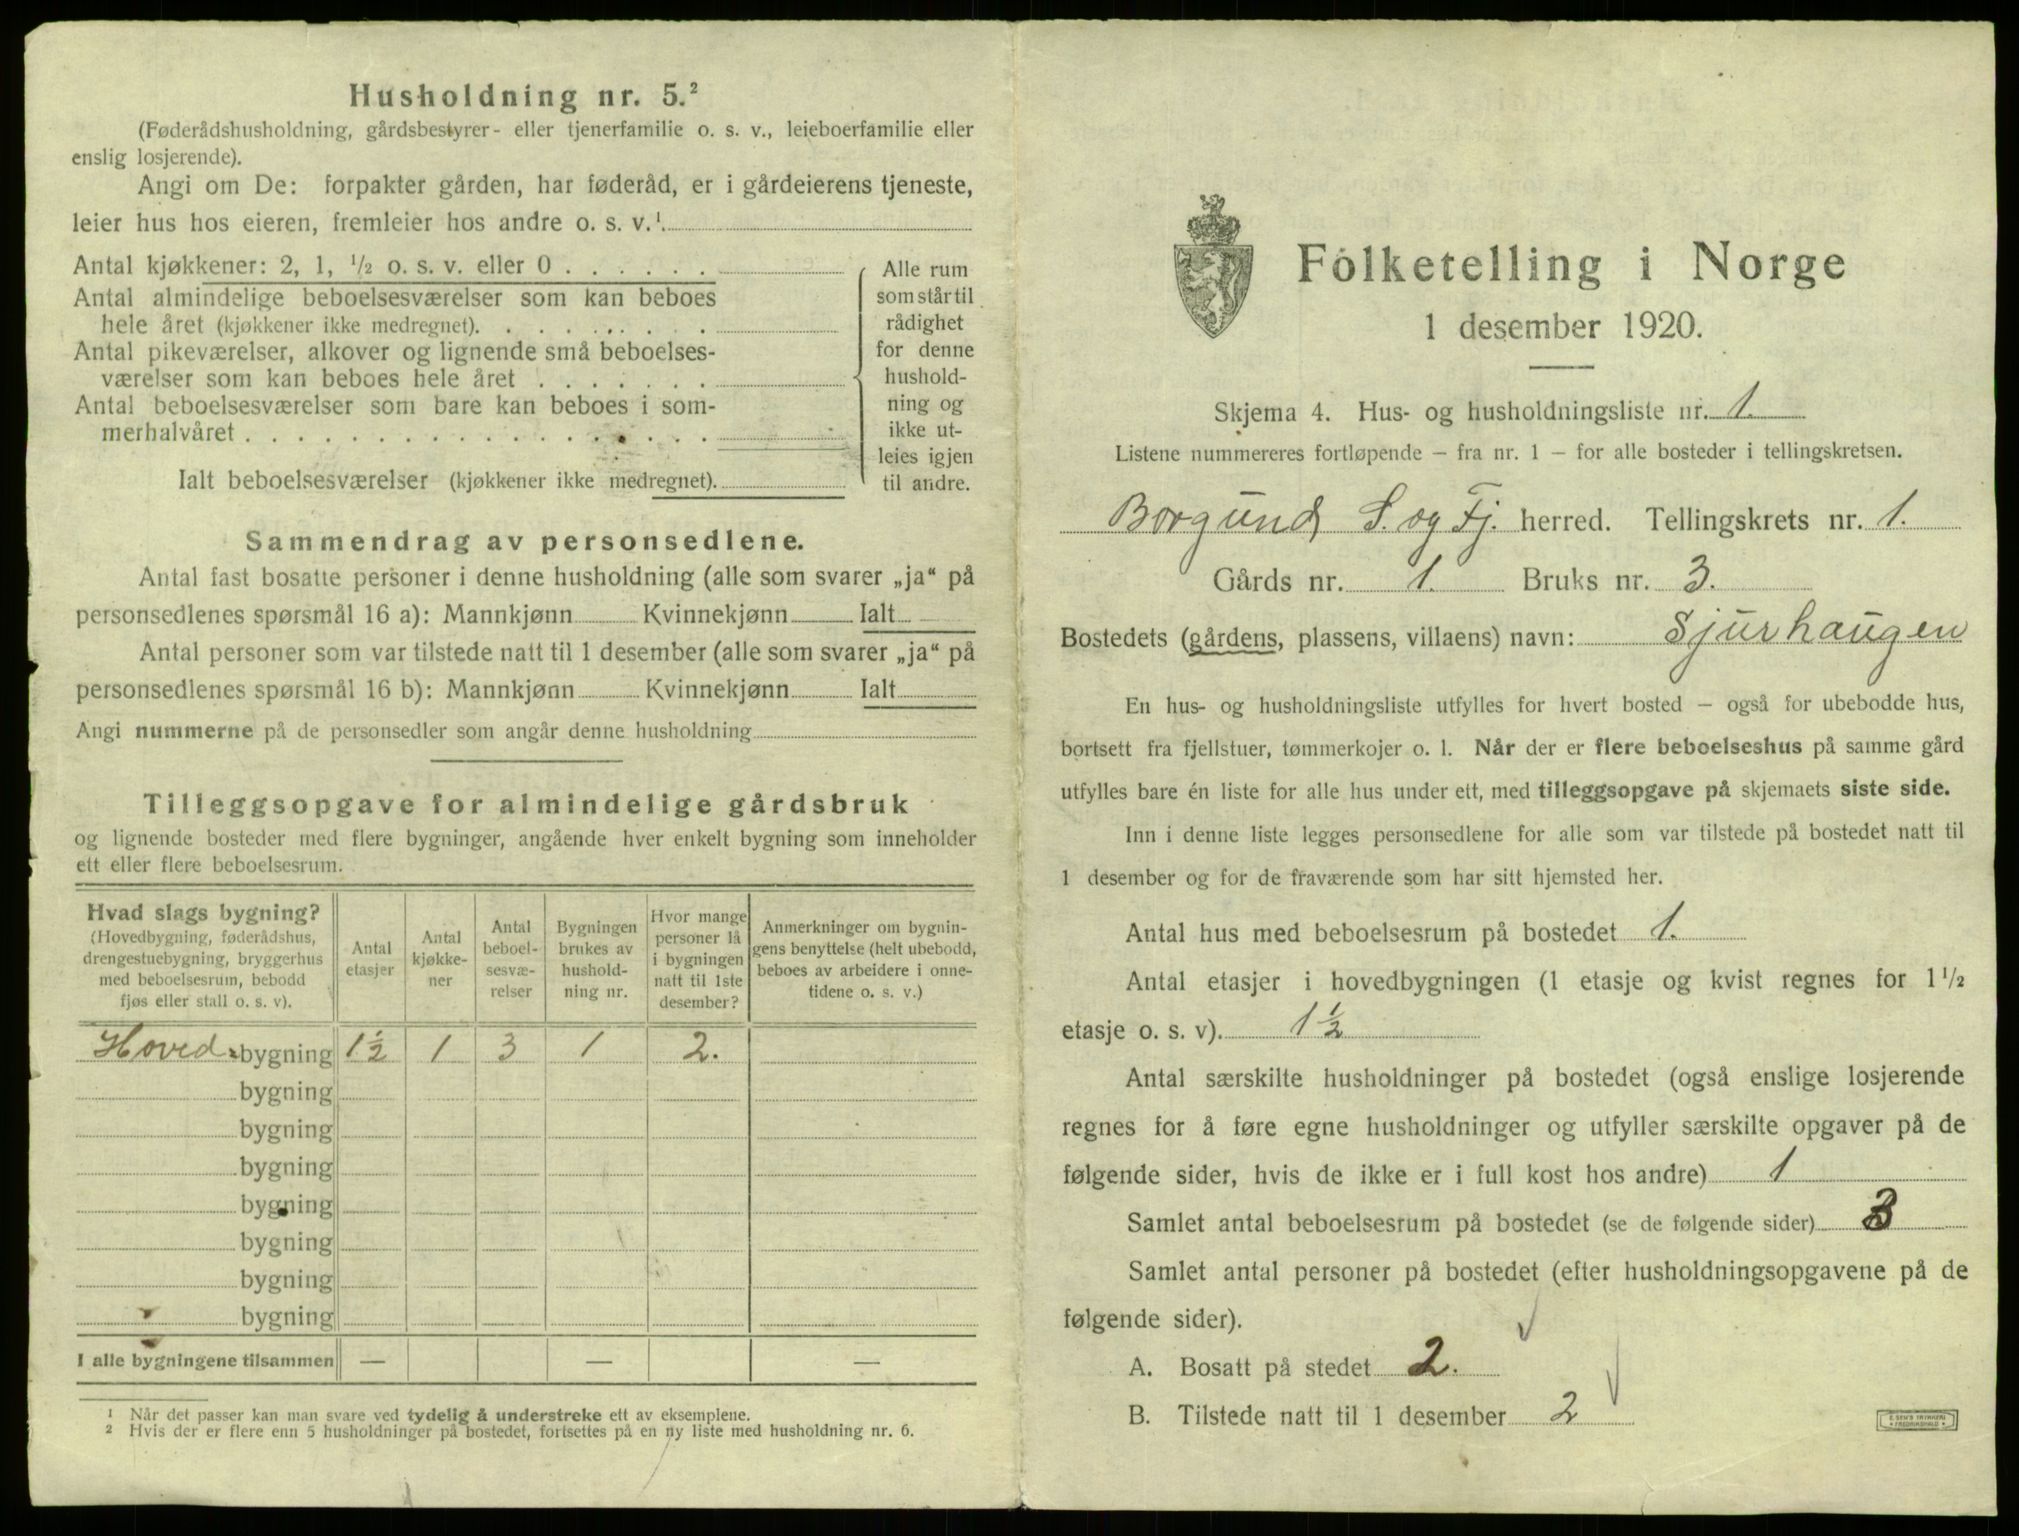 Husholdning nr. 5.²
(Føderådshusholdning, gårdsbestyrer- eller tjenerfamilie o. s. v., leieboerfamilie eller
enslig losjerende).
Angi om De: forpakter gården, har føderåd, er i gårdeierens tjeneste,
leier hus hos eieren, fremleier hos andre o. s. v.¹
Antal kjøkkener: 2, 1, ½ o. s. v. eller 0
Antal almindelige beboelsesværelser som kan beboes
hele året (kjøkkener ikke medregnet)
Antal pikeværelser, alkover og lignende små beboelses-
værelser som kan beboes hele året
Antal beboelsesværelser som bare kan beboes i som-
merhalvåret
Ialt beboelsesværelser (kjøkkener ikke medregnet).
Alle rum
som står til
rådighet
for denne
hushold-
ning og
ikke ut-
leies igjen
til andre.
Sammendrag av personsedlene.
Antal fast bosatte personer i denne husholdning (alle som svarer „ja“ på
personsedlenes spørsmål 16 a): Mannkjønn Kvinnekjønn Ialt
Antal personer som var tilstede natt til 1 desember (alle som svarer „ja“ på
personsedlenes spørsmål 16 b): Mannkjønn Kvinnekjønn Ialt
Angi nummerne på de personsedler som angår denne husholdning
Tilleggsopgave for almindelige gårdsbruk
og lignende bosteder med flere bygninger, angående hver enkelt bygning som inneholder
ett eller flere beboelsesrum.
Hvad slags bygning?
(Hovedbygning, føderådshus,
drengestuebygning, bryggerhus
med beboelsesrum, bebodd
fjøs eller stall o. s. v).
Antal
etasjer
Antal
kjøkke-
ner
Antal
beboel-
sesvæ-
relser
Bygningen
brukes av
hushold-
ning nr.
Hvor mange
personer lå
i bygningen
natt til 1ste
desember?
Anmerkninger om bygnin-
gens benyttelse (helt ubebodd,
beboes av arbeidere i onne-
tidene o. s. v.)
Hoved-bygning 1½ 1 3 1 2.
bygning
bygning
bygning
bygning
bygning
bygning
bygning
I alle bygningene tilsammen — — —
¹ Når det passer kan man svare ved tydelig å understreke ett av eksemplene.
² Hvis der er flere enn 5 husholdninger på bostedet, fortsettes på en ny liste med husholdning nr. 6.
Folketelling i Norge
1 desember 1920.
Skjema 4. Hus- og husholdningsliste nr. 1.
Listene nummereres fortløpende – fra nr. 1 – for alle bosteder i tellingskretsen.
Borgund S. og Fj. herred. Tellingskrets nr. 1.
Gårds nr. 1. Bruks nr. 3.
Bostedets (gårdens, plassens, villaens) navn: Sjurhaugen
En hus- og husholdningsliste utfylles for hvert bosted – også for ubebodde hus,
bortsett fra fjellstuer, tømmerkojer o. l. Når der er flere beboelseshus på samme gård
utfylles bare én liste for alle hus under ett, med tilleggsopgave på skjemaets siste side.
Inn i denne liste legges personsedlene for alle som var tilstede på bostedet natt til
1 desember og for de fraværende som har sitt hjemsted her.
Antal hus med beboelsesrum på bostedet 1.
Antal etasjer i hovedbygningen (1 etasje og kvist regnes for 1 1/2
etasje o. s. v). 1½
Antal særskilte husholdninger på bostedet (også enslige losjerende
regnes for å føre egne husholdninger og utfyller særskilte opgaver på de
følgende sider, hvis de ikke er i full kost hos andre) 1
Samlet antal beboelsesrum på bostedet (se de følgende sider) 3
Samlet antal personer på bostedet (efter husholdningsopgavene på de
følgende sider).
A. Bosatt på stedet 2.
B. Tilstede natt til 1 desember 2
E. SEM'S TRYKKERI
FREDRIKSHALD